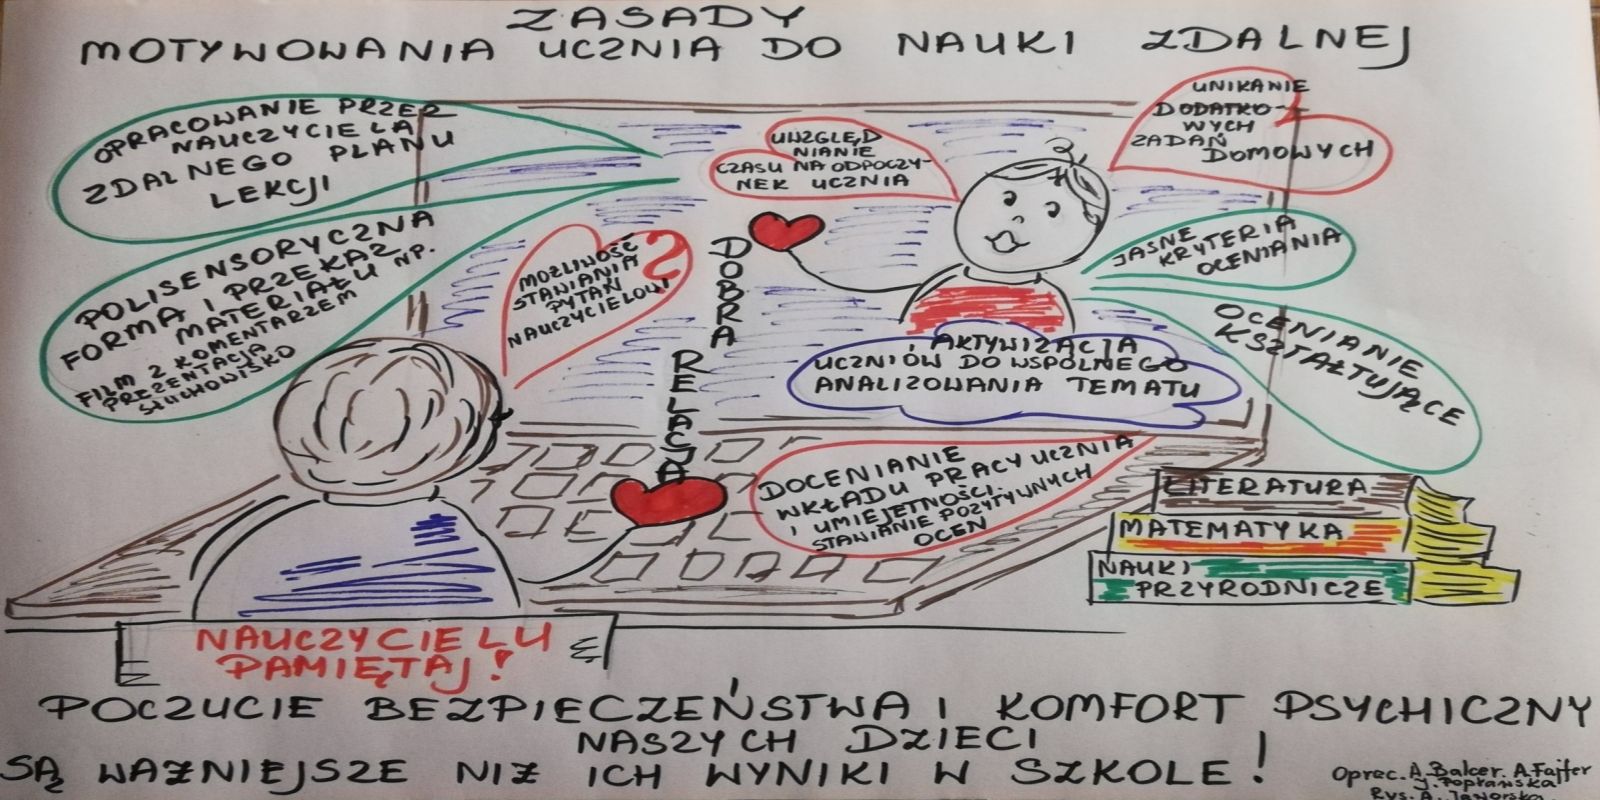 ZASADY
MOTYWOWANIA UCZNIA DO NAUKI ZDALNEJ
OPRACOWANIE PRZEZ
NAUCZYCIELA
ZDALNEGO PLANU
LEKCJI
POLISENSORYCZNA
FORMA I PRZEKAZ
MATERIAŁU NP.
FILM Z KOMENTARZEM
PREZENTACJA
SŁUCHOWISKO
MOŻLIWOŚĆ
STAWIANIA
PYTAŃ
NAUCZYCIELOWI
?
UWZGLĘD
NIANIE
CZASU NA ODPOCZY-
NEK UCZNIA
UNIKANIE
DODATKO-
WYCH
ZADAŃ
DOMOWYCH
JASNE
KRYTERIA
OCENIANIA
OCENIANIE
KSZTAŁTUJĄCE
DOBRA
RELACJA
AKTYWIZACJA
UCZNIÓW DO WSPÓLNEGO
ANALIZOWANIA TEMATU
DOCENIANIE
WKŁADU PRACY UCZNIA
I UMIEJĘTNOŚCI.
STAWIANIE POZYTYWNYCH
OCEN
LITERATURA
MATEMATYKA
NAUKI
PRZYRODNICZE
NAUCZYCIELU
PAMIĘTAJ!
POCZUCIE BEZPIECZEŃSTWA I KOMFORT PSYCHICZNY
NASZYCH DZIECI
SĄ WAŻNIEJSZE NIŻ ICH WYNIKI W SZKOLE!
Oprac. A. Balcer. A. Fajfer
J. Popławska
Rys. A. Jaworska